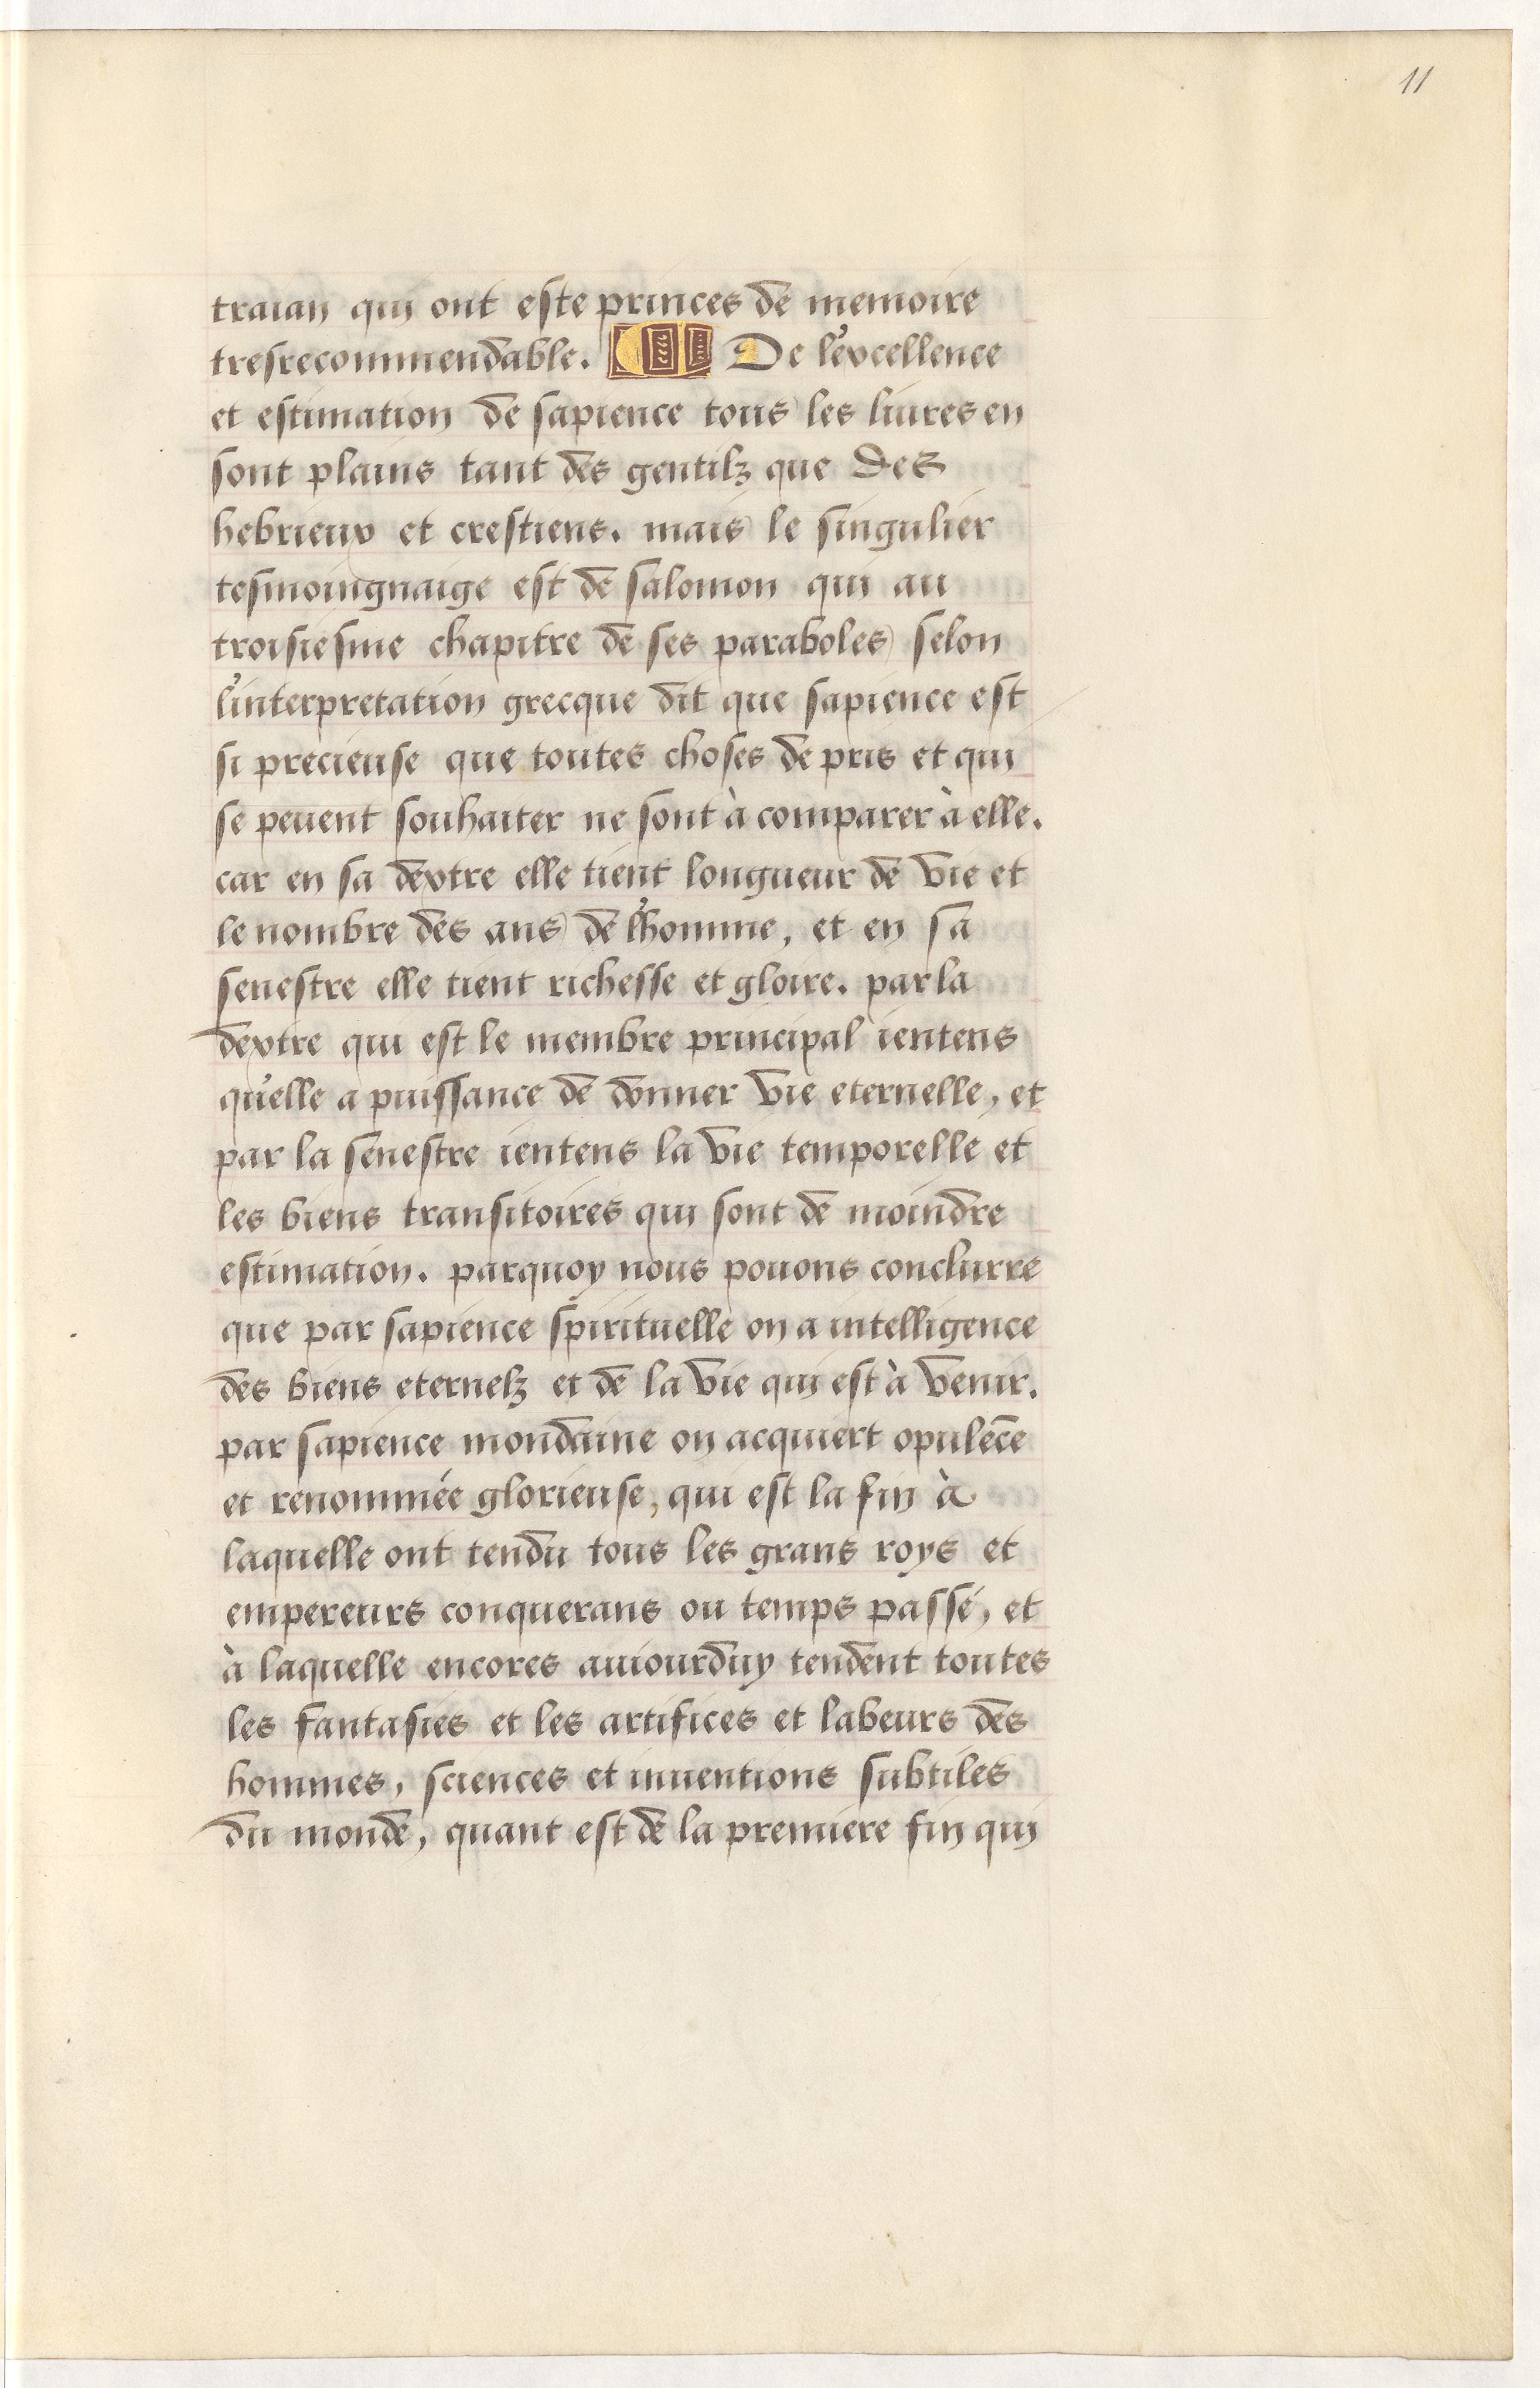 11
traian qui ont este princes de memoire
tresrecommendable. De l'excellence
et estimation de sapience tous les liures en
sont plains tant des gentilz que des
hebrieux et crestiens. mais le singulier
tesmoingnaige est de salomon qui au
troisiesme chapitre de ses paraboles selon
l'interpretation grecque dit que sapience est
si precieuse que toutes choses de pris et qui
se peuent souhaiter ne sont à comparer à elle.
car en sa dextre elle tient longueur de vie et
le nombre des ans de l'homme, et en sa
senestre elle tient richesse et gloire. par la
dextre qui est le membre principal ientens
qu'elle a puissance de donner vie eternelle, et
par la senestre ientens la vie temporelle et
les biens transitoires qui sont de moindre
estimation. parquoy nous pouons conclurre
que par sapience spirituelle on a intelligence
des biens eternelz et de la vie qui est à venir.
par sapience mondaine on acquiert opulēce
et renommée glorieuse, qui est la fin à
laquelle ont tendu tous les grans roys et
empereurs conquerans ou temps passé, et
à laquelle encores auiourduy tendent toutes
les fantasies et les artifices et labeurs des
hommes, sciences et inuentions subtiles
du monde, quant est de la premiere fin qui